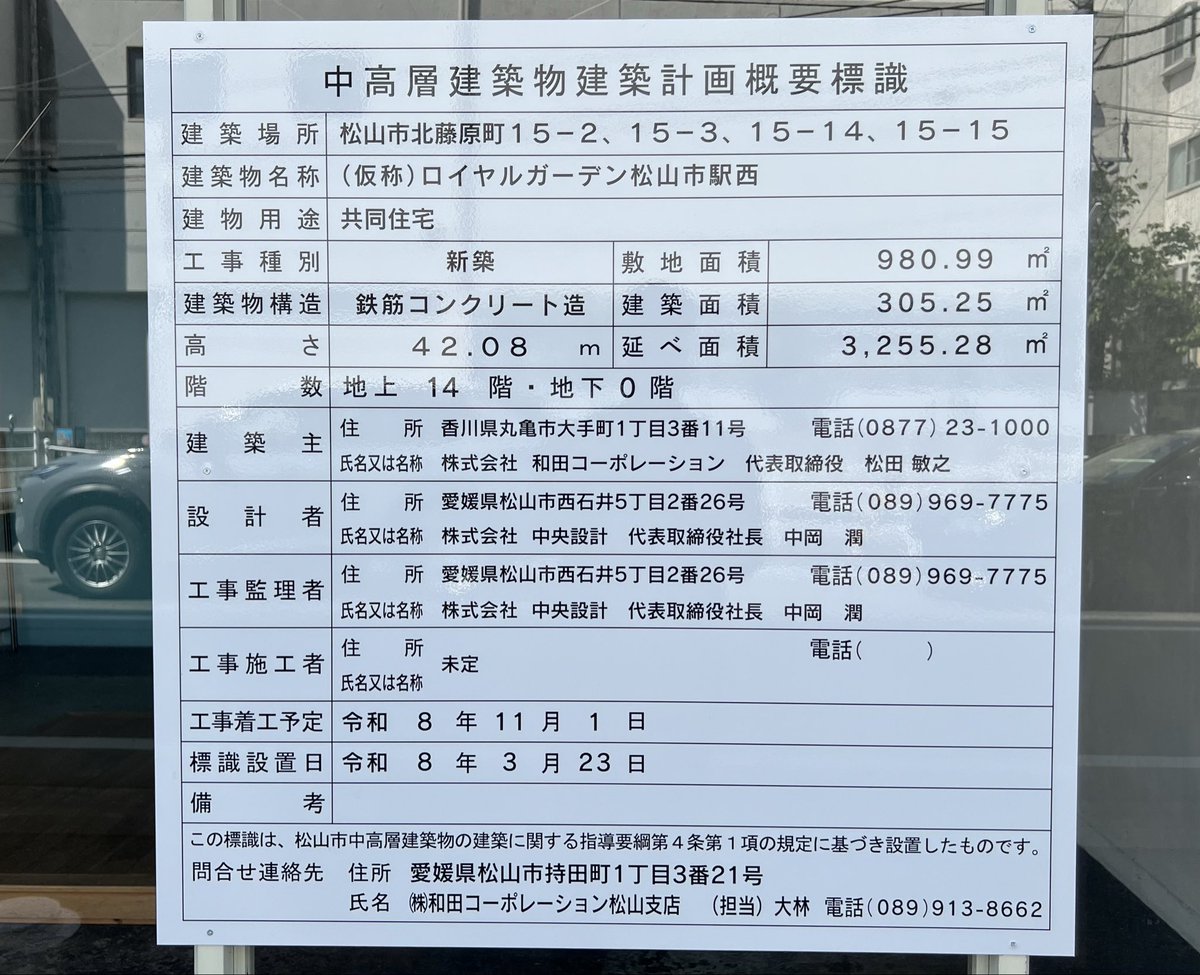 中高層建築物建築計画概要標識
建築場所 松山市北藤原町15－2、15－3、15－14、15－15
建築物名称 （仮称）ロイヤルガーデン松山市駅西
建物用途 共同住宅
工事種別 新築 敷地面積 980.99 ㎡
建築物構造 鉄筋コンクリート造 建築面積 305.25 ㎡
高さ 42.08 m 延べ面積 3,255.28 ㎡
階数 地上 14 階・地下 0 階
建築主 住所 香川県丸亀市大手町1丁目3番11号 電話(0877) 23-1000
氏名又は名称 株式会社 和田コーポレーション 代表取締役 松田 敏之
設計者 住所 愛媛県松山市西石井5丁目2番26号 電話(089) 969-7775
氏名又は名称 株式会社 中央設計 代表取締役社長 中岡 潤
工事監理者 住所 愛媛県松山市西石井5丁目2番26号 電話(089) 969-7775
氏名又は名称 株式会社 中央設計 代表取締役社長 中岡 潤
工事施工者 住所 未定 電話( )
氏名又は名称
工事着工予定 令和 8 年 11 月 1 日
標識設置日 令和 8 年 3 月 23 日
備考
この標識は、松山市中高層建築物の建築に関する指導要綱第4条第1項の規定に基づき設置したものです。
問合せ連絡先 住所 愛媛県松山市持田町1丁目3番21号
氏名 ㈱和田コーポレーション松山支店 （担当）大林 電話(089) 913-8662